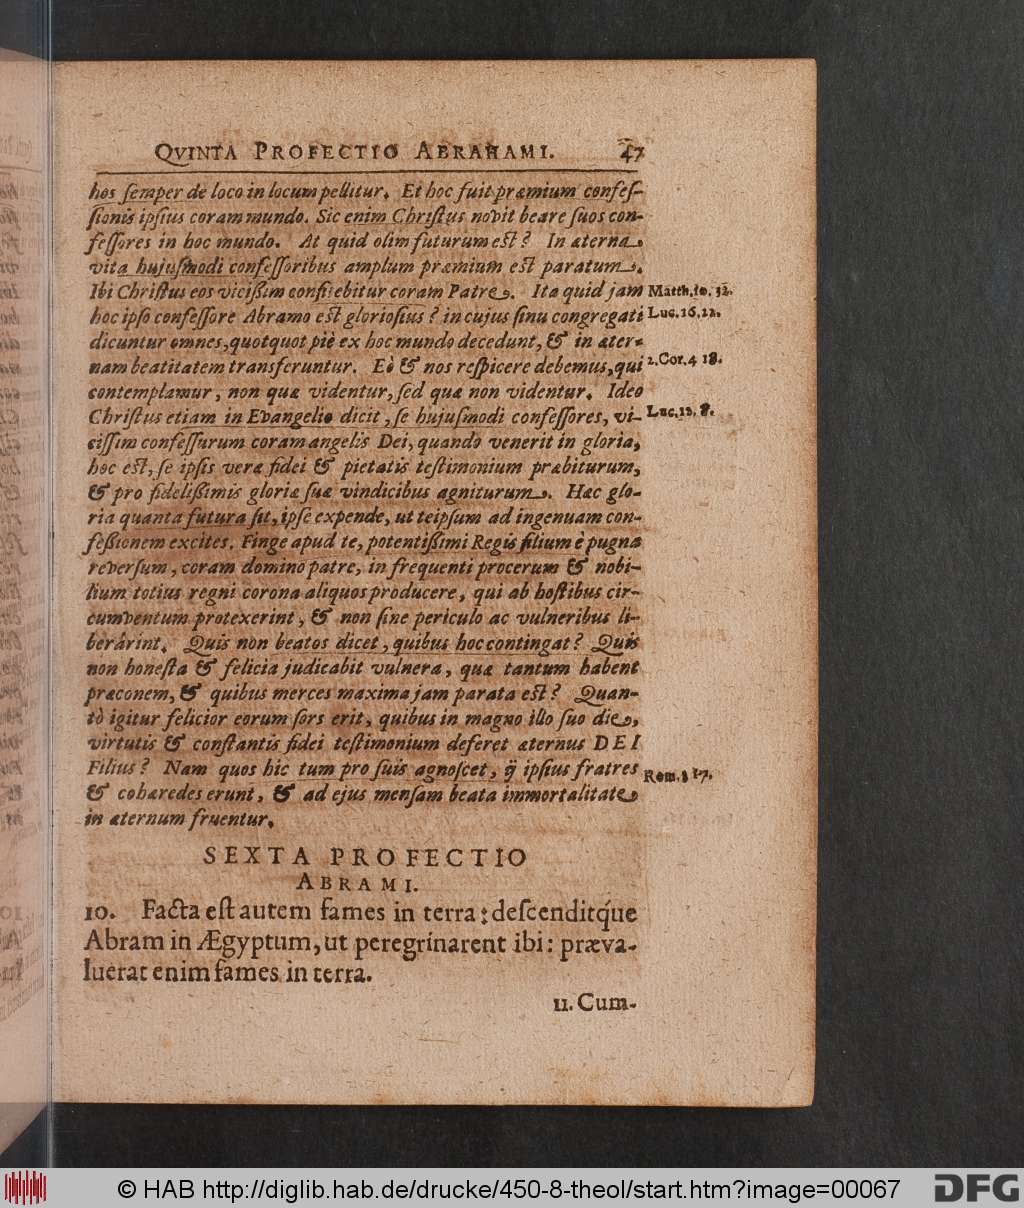 QVINTA PROFECTIO ABRAHAMI. 47
hos semper de loco in locum pellitur. Et hoc fuit præmium confes-
sionis ipsius coram mundo. Sic enim Christus novit beare suos con-
fessores in hoc mundo. At quid olim futurum est? In æterna
vita hujusmodi confessoribus amplum præmium est paratum.
Ibi Christus eos vicissim confitebitur coram Patre. Ita quid jam Matth. 10. 32.
hoc ipso confessore Abramo est gloriosius? in cujus sinu congregati Luc. 16. 22.
dicuntur omnes, quotquot piè ex hoc mundo decedunt, & in æter-
nam beatitatem transferuntur. Eò & nos respicere debemus, qui 2. Cor. 4 18.
contemplamur, non quæ videntur, sed quæ non videntur. Ideo
Christus etiam in Evangelio dicit, se hujusmodi confessores, vi- Luc. 12. 8.
cissim confessurum coram angelis Dei, quando venerit in gloria,
hoc est, se ipsis veræ fidei & pietatis testimonium præbiturum,
& pro fidelissimis gloriæ suæ vindicibus agniturum. Hæc glo-
ria quanta futura sit, ipse expende, ut teipsum ad ingenuam con-
fessionem excites. Finge apud te, potentissimi Regis filium è pugna
reversum, coram domino patre, in frequenti procerum & nobi-
lium totius regni corona aliquos producere, qui ab hostibus cir-
cumventum protexerint, & non sine periculo ac vulneribus li-
berârint. Quis non beatos dicet, quibus hoc contingat? Quis
non honesta & felicia judicabit vulnera, quæ tantum habent
præconem, & quibus merces maxima jam parata est? Quan-
tò igitur felicior eorum sors erit, quibus in magno illo suo die,
virtutis & constantis fidei testimonium deferet æternus DEI
Filius? Nam quos hic tum pro suis agnoscet, ii ipsius fratres Rom. 8 17.
& cohæredes erunt, & ad ejus mensam beata immortalitate
in æternum fruentur.
SEXTA PROFECTIO
ABRAMI.
10. Facta est autem fames in terra: descenditq́ue
Abram in Ægyptum, ut peregrinarent ibi: præva-
luerat enim fames in terra.
11. Cum-
© HAB http://diglib.hab.de/drucke/450-8-theol/start.htm?image=00067
DFG